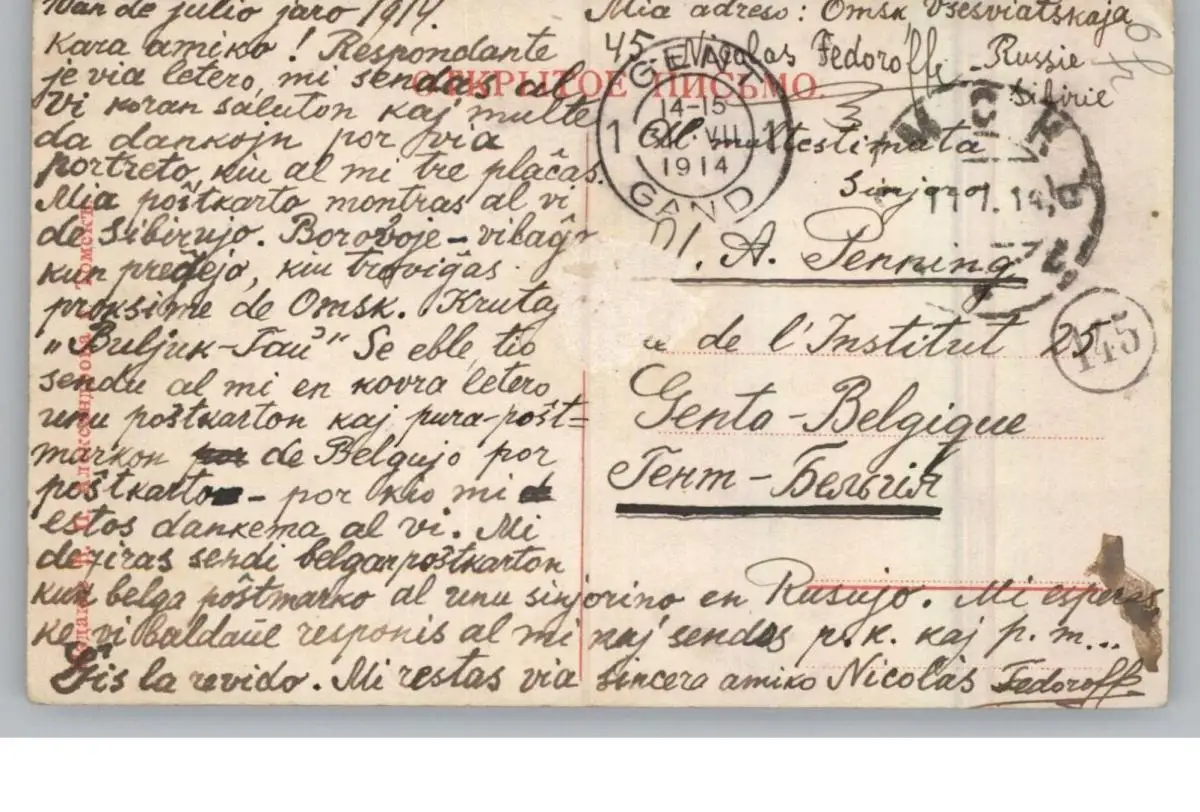 de julio jaro 1914.
Kara amiko! Respondante
je via letero, mi sendas al
vi koran saluton kaj multe
da dankojn por via
portreto, kiu al mi tre plaĉas.
Mia poŝtkarto montras al vi
de Sibirujo. Borovoje - vilaĝo
kun preĝejo, kiu troviĝas
proksime de Omsk. Krutaj
„Buljuk-Tau" Se eble, tio
sendu al mi en kovra letero
unu poŝtkarton kaj pura-poŝt=
markon de Belgujo por
poŝtkarto - por kio mi
estos dankema al vi. Mi
deziras sendi belgan poŝtkarton
kun belga poŝtmarko al unu sinjorino en Rusujo. Mi esperas
ke vi baldaŭ responis al mi kaj sendos p.k. kaj p.m...
Ĝis la revido. Mi restas via sincera amiko Nicolas Fedoroff.
Mia adreso: Omsk, Vsesviatskaja
45 - Nicolas Fedoroff - Russie
Sibirie
ОТКРЫТОЕ ПИСЬМО.
GENT
14-15
1 VII 1
1914
GAND
ОМСКЪ
Al multestimata
Sinjoro
A. Penning
de l'Institut 25
145
Gento - Belgique
Гент - Бельгія